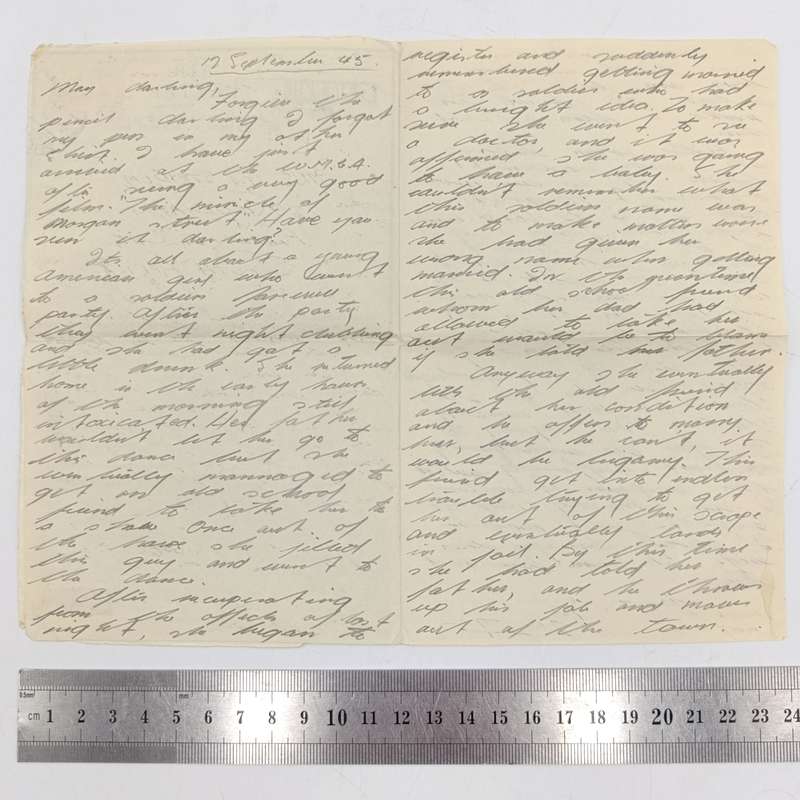 12 September 45.
May darling,
Forgive the
pencil darling I forgot
my pen in my other
shirt. I have just
arrived at the Y.M.C.A.
after seeing a very good
film. "The miracle of
Morgan street" Have you
seen it darling?
Its all about a young
American girl who went
to a soldiers farewell
party. After the party
they went night clubbing
and she had got a
little drunk. She returned
home in the early hours
of the morning still
intoxicated. Her father
wouldn't let her go to
this dance but she
eventually mannaged to
get an old school
friend to take her to
a show. Once out of
the house she jilted
this guy and went to
the dance.
After recuperating
from the effects of last
night, she began to
register and suddenly
remembered getting married
to a soldier who had
a bright idea. To make
sure she went to see
a doctor, and it was
affirmed she was going
to have a baby. She
couldn't remember what
this soldiers name was
and to make matters worse
she had given her
wrong name when getting
married. In the meantime
this old school friend
whom her dad had
allowed to take her
out would be to blame
if she told her father.
Anyway she eventually
tells the old friend
about her condition
and he offers to marry
her, but he can't, it
would be bigamy. This
friend gets into endless
trouble trying to get
her out of this scrape
and eventually lands
in jail. By this time
she had told her
father, and he throws
up his job and moves
out of the town.
0.5mm
5mm
cm 1 2 3 4 5 6 7 8 9 10 11 12 13 14 15 16 17 18 19 20 21 22 23 24